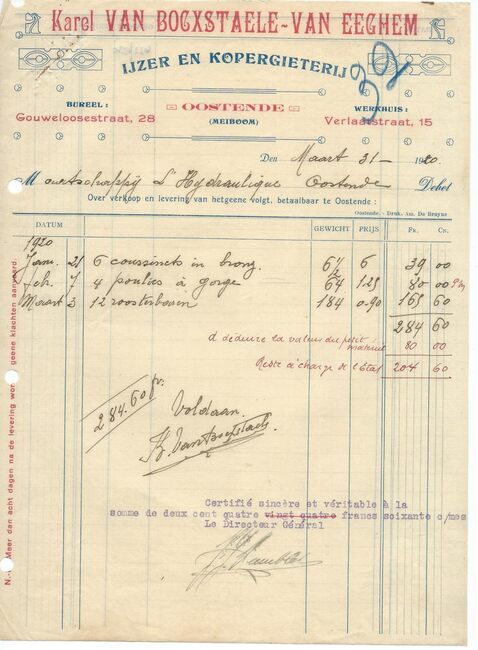 Karel VAN BOCXSTAELE-VAN EEGHEM
IJZER EN KOPERGIETERIJ
39
BUREEL :
Gouweloosestraat, 28
OOSTENDE
(MEIBOOM)
WERKHUIS :
Verlaatstraat, 15
Den Maart 31 - 1920
Maatschappij L'Hydraulique Oostende Debet
Over verkoop en levering van hetgeene volgt, betaalbaar te Oostende :
Oostende. - Druk. Am. De Bruyne
DATUM GEWICHT PRIJS FR. CN.
1920
Janu. 21 6 coussinets in bronz. 6 39 00
Feb. 7 4 poulies à gorge 64 1.25 80 00
Maart 3 12 roosterbaren 184 0.90 165 60
284 60
à déduire la valeur du petit matériel 80 00
Reste à charge de l'État 204 60
284.60 fr.
Voldaan
K. Van Bocxstaele
Certifié sincère et véritable à la
somme de deux cent quatre vingt quatre francs soixante c/mes
Le Directeur Général
N.- Meer dan acht dagen na de levering worden geene klachten aanvaard.